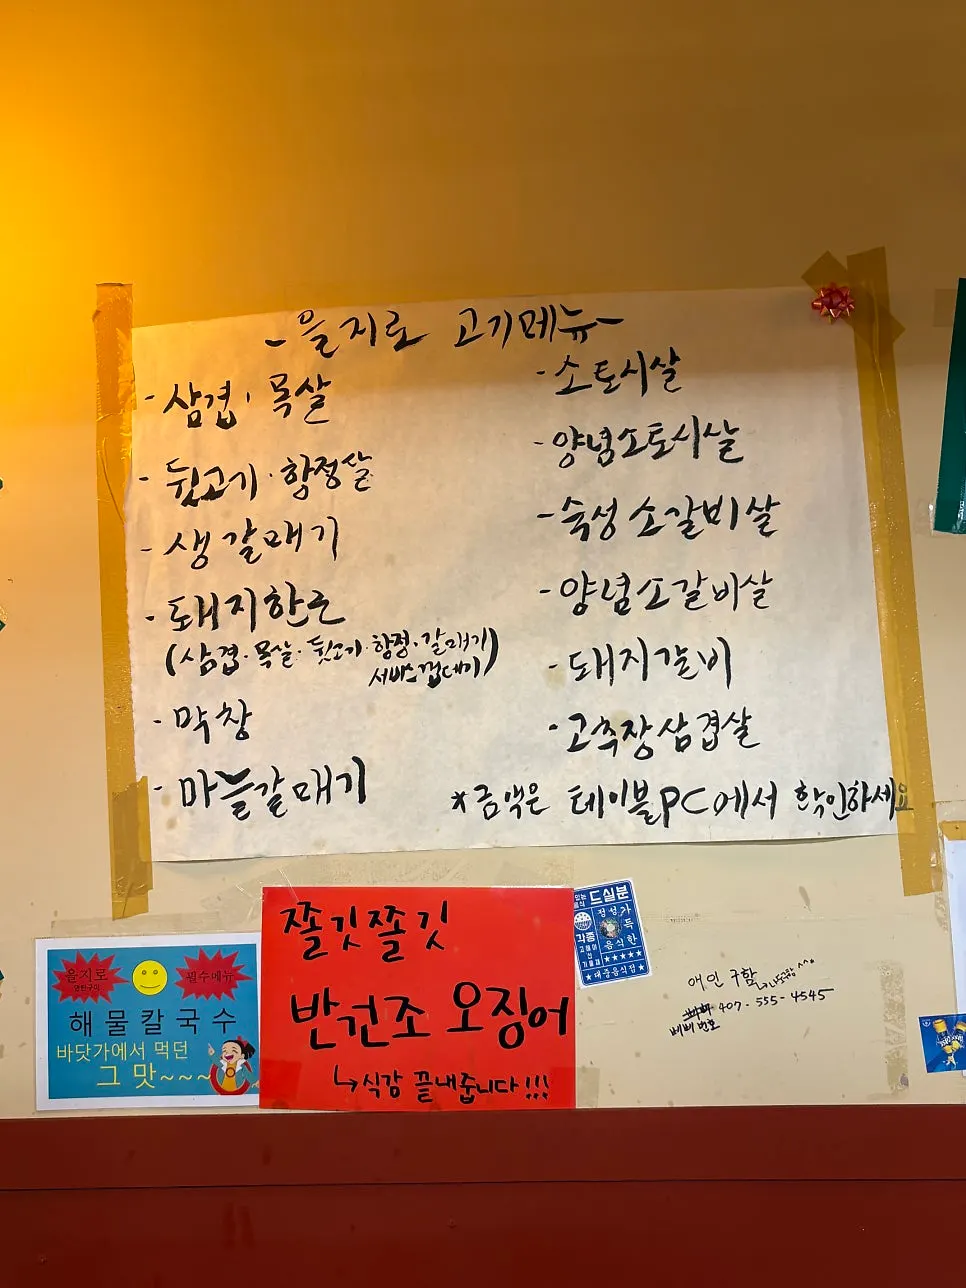 -을지로 고기메뉴-
· 삼겹 · 목살
· 뒷고기 · 항정살
- 생갈매기
· 돼지한근
(삼겹 · 목살 · 뒷고기 · 항정 · 갈매기
서비스껍데기)
· 막창
· 마늘갈매기
· 소토시살
· 양념소토시살
- 숙성 소갈비살
· 양념소갈비살
· 돼지갈비
· 고추장삼겹살
* 금액은 테이블PC에서 확인하세요
을지로
필수메뉴
해물칼국수
바닷가에서 먹던
그 맛~~~
쫄깃쫄깃
반건조 오징어
↳식감 끝내줍니다!!!
드실분
각종
정성가득한
음식
★★★★★
★대중음식점★
애인 구함
407-555-4545
삐삐번호